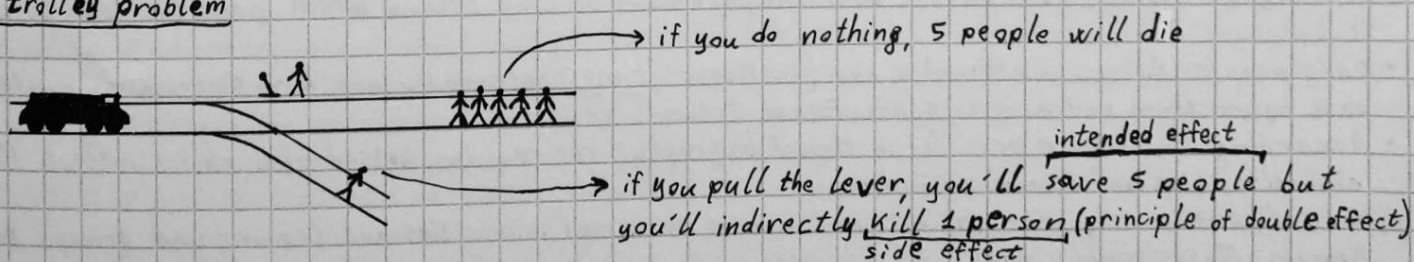 trolley problem
if you do nothing, 5 people will die
intended effect
if you pull the lever, you'll save 5 people but
you'll indirectly kill 1 person (principle of double effect)
side effect